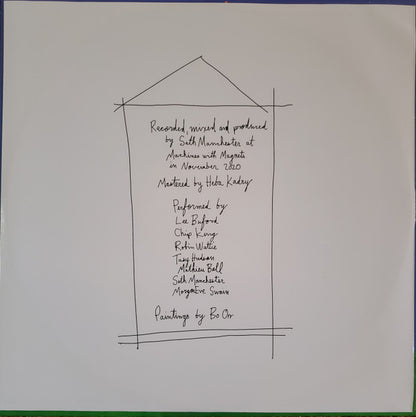 Recorded, mixed and produced
by Seth Manchester at
Machines with Magnets
in November 2020
Mastered by Heba Kadry
Performed by
Lee Buford
Chip King
Robin Wattie
Tracy Hudson
Mathieu Ball
Seth Manchester
MorganEve Swain
Paintings by Bo Orr